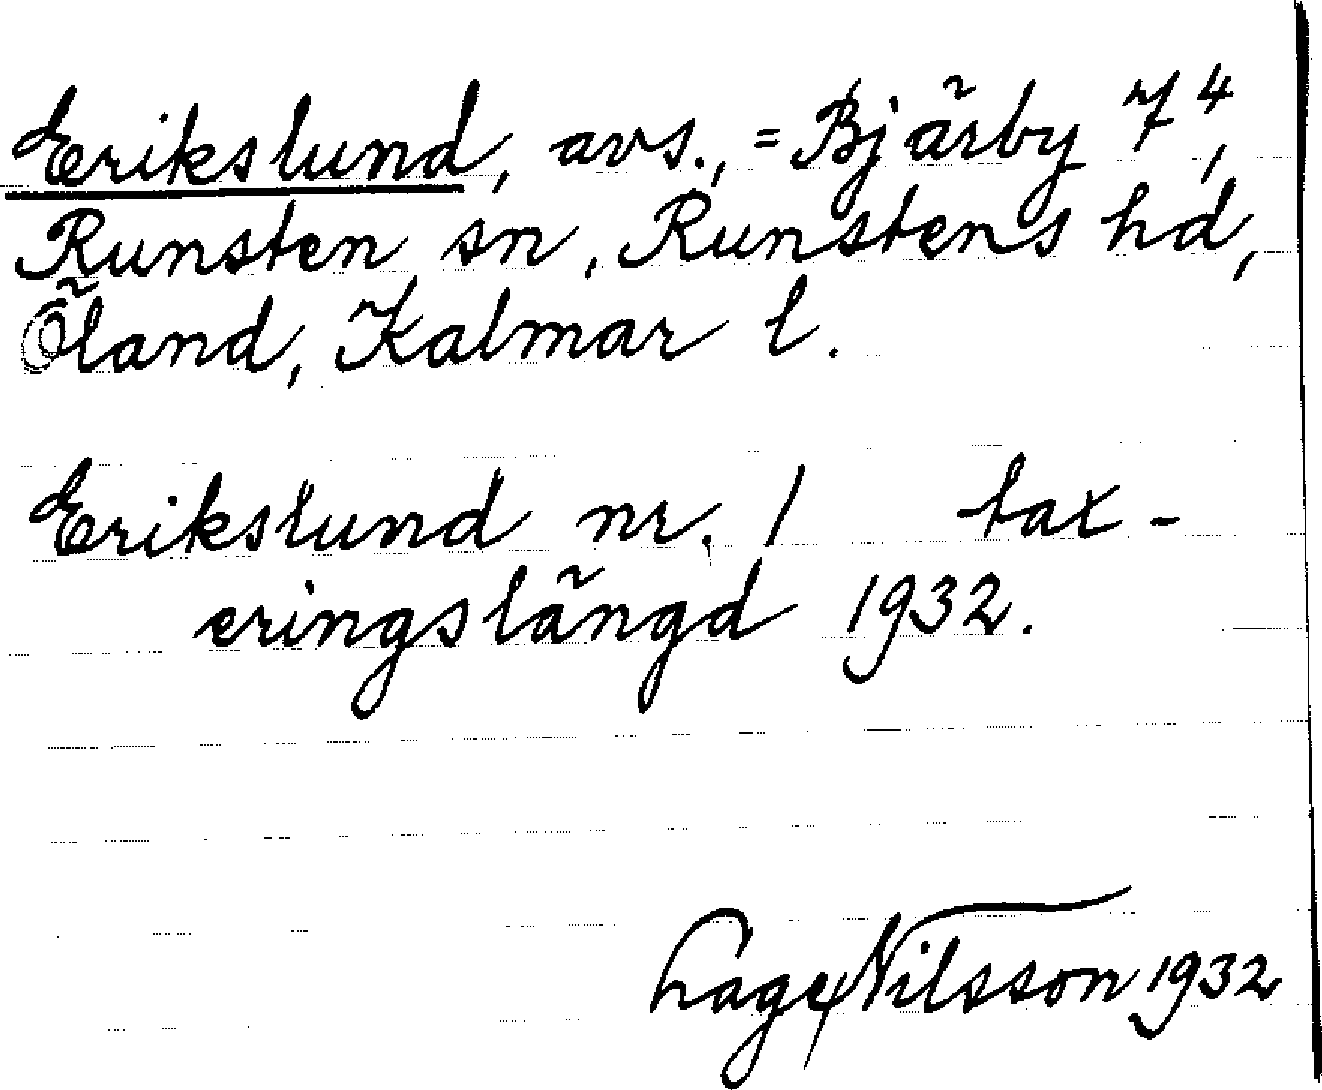 Erikslund, avs., = Bjärby 7⁴,
Runsten sn, Runstens hd,
Öland, Kalmar l.
Erikslund nr. 1 tax-
eringslängd 1932.
Lage Nilsson 1932